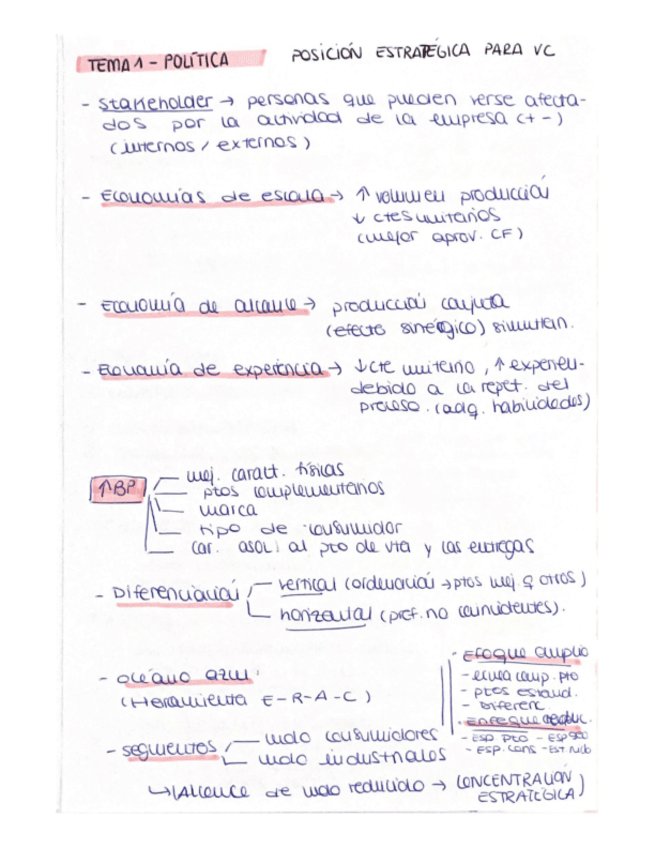 TEMA 1 - POLÍTICA POSICIÓN ESTRATÉGICA PARA VC
- Stakeholder → personas que pueden verse afecta-
dos por la actividad de la empresa (+ -)
(internos / externos)
- Economías de escala → ↑ volumen producción
↓ ctes unitarios
(mejor aprov. CF)
- Economía de alcance → producción conjunta
(efecto sinérgico) simultán.
- Economía de experiencia → ↓ cte unitario, ↑ experien-
debido a la repet. del
proceso. (adq. habilidades)
↑BP
mej. caract. físicas
ptos complementarios
marca
tipo de consumidor
car. asoc. al pto de vta y las entregas
- Diferenciación
vertical (ordenación → ptos mej. q otros)
horizontal (pref. no coincidentes).
- océano azul
(Herramienta E-R-A-C)
- segmentos
mdo consumidores
mdo industriales
↳ (Alcance de mdo reducido → CONCENTRACIÓN
ESTRATÉGICA)
- Efoque amplio
- ptos estand.
- Diferenc.
- Enfoque reduc.
- ESP PTO - ESP geo
- ESP. cons